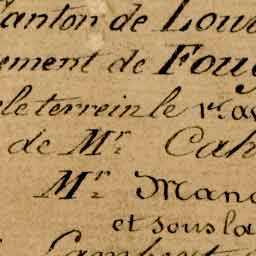 Canton de Lou
ement de Foug
le terrein le 1.er av
de M.r Cah
M.r Mana
et sous la
Lambert